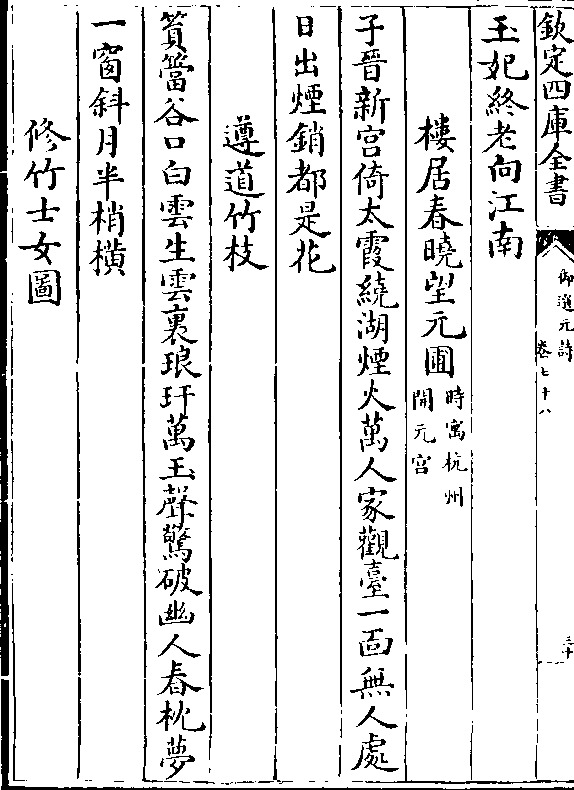 欽定四庫全書
御選元詩
卷七十八
三十
玉妃終老向江南
樓居春曉望元圃
時寓杭州
開元宮
子晉新宮倚太霞繞湖煙火萬人家觀臺一面無人處
日出煙銷都是花
遵道竹枝
篔簹谷口白雲生雲裏琅玕萬玉聲驚破幽人春枕夢
一窗斜月半梢橫
修竹士女圖